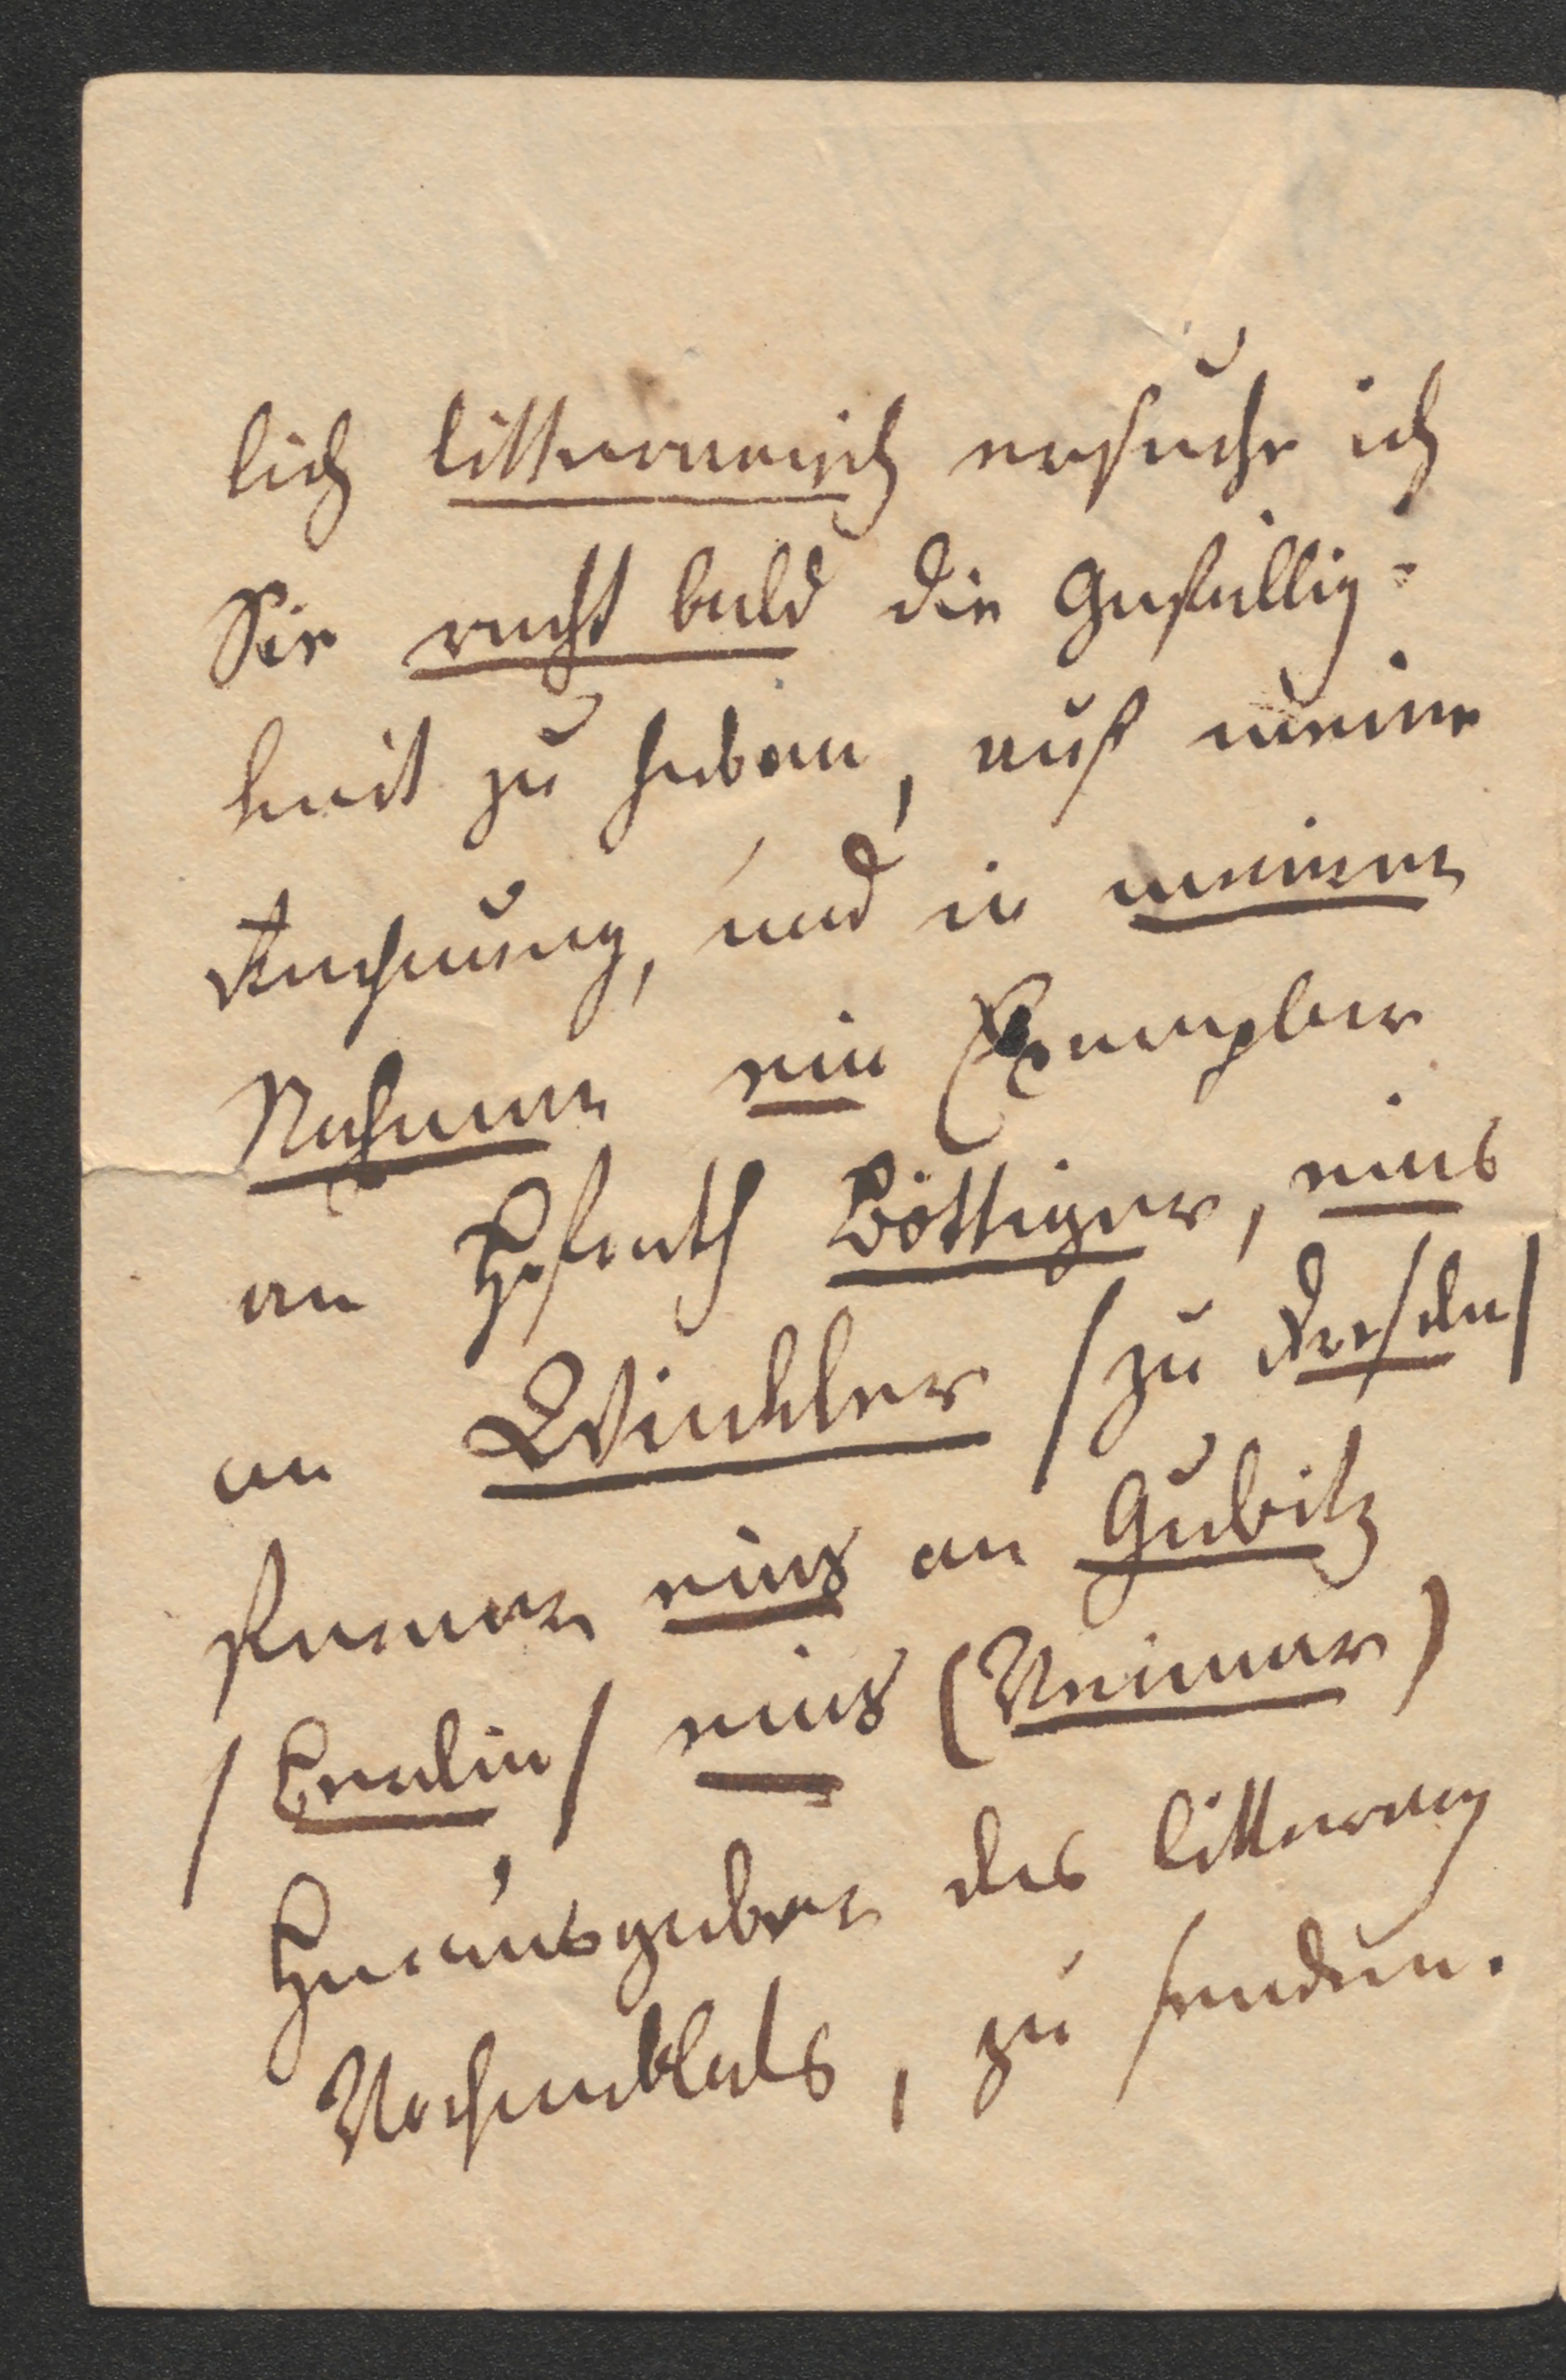 lich litterarisch ersuche ich
Sie recht bald die Gefällig=
keit zu haben, auf meine
Rechnung, und in meinem
Nahmen ein Exemplar
an Hofrath Böttiger, eins
an Winkler /zu Dresden/
ferner eins an Gubitz
/Berlin/ eins (Weimar)
Herausgeber des litterar
Wochenblats, zu senden.